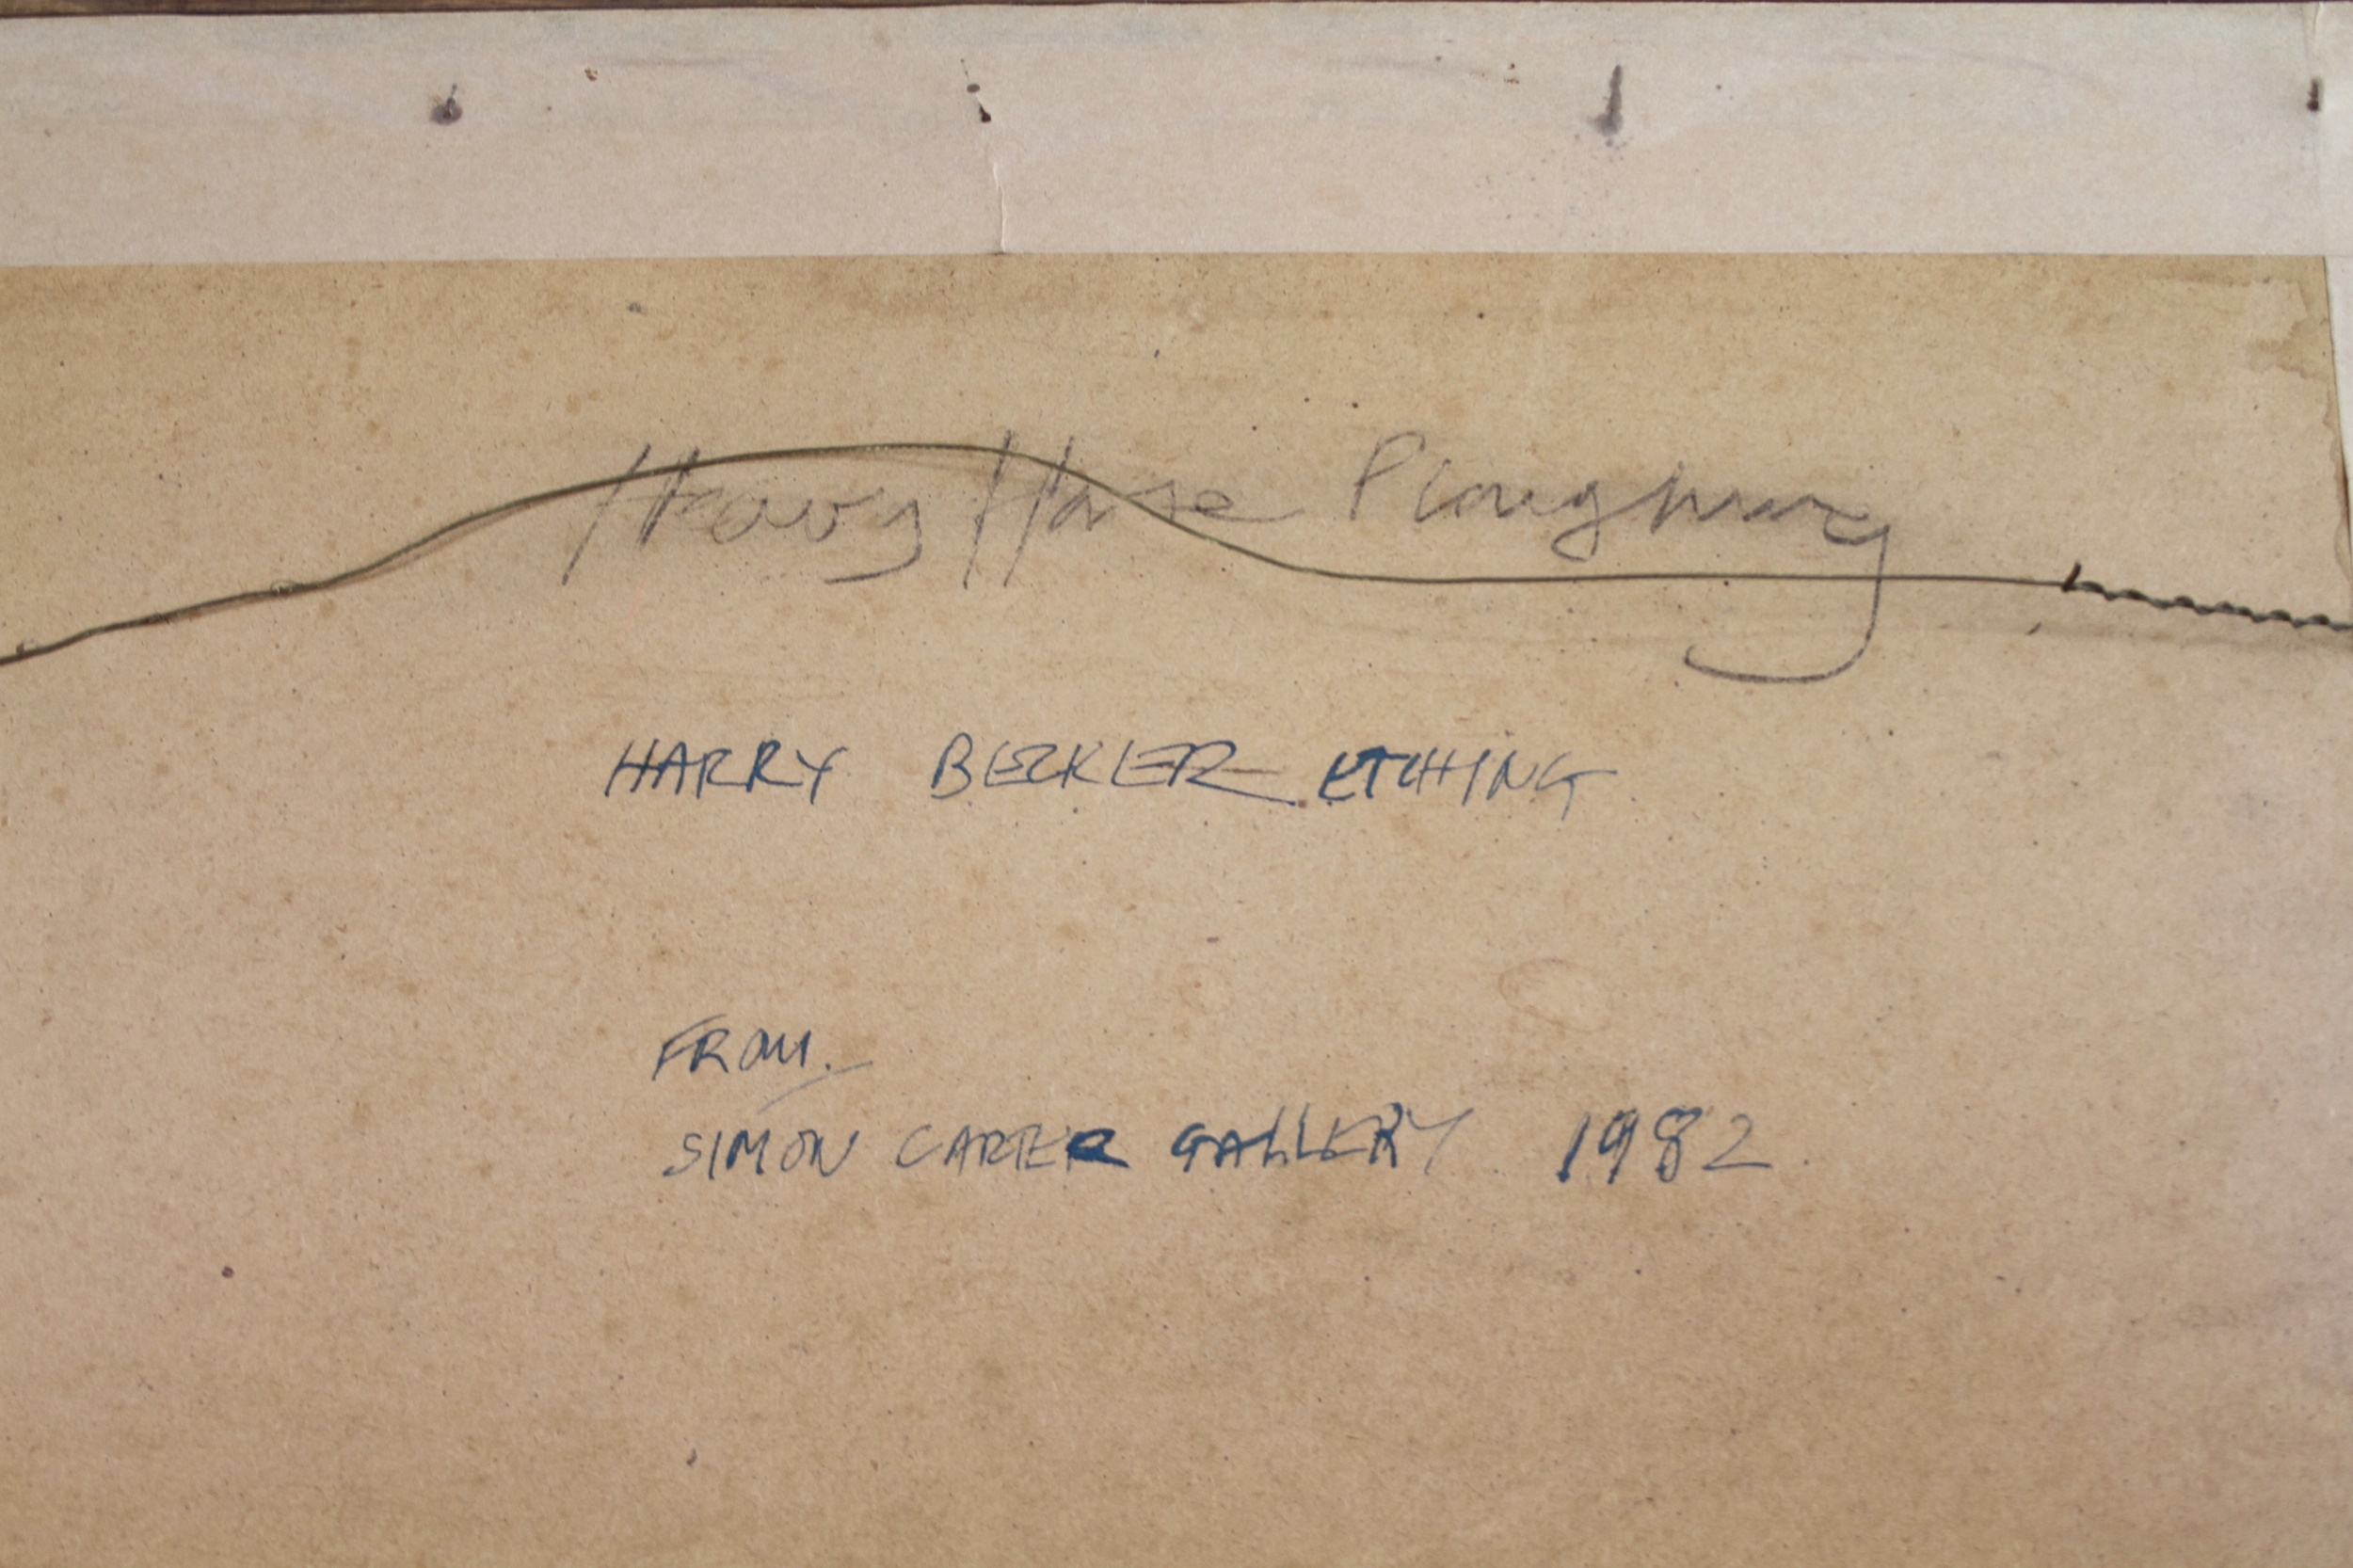 Heavy Horse Ploughing
HARRY BECKER ETCHING
FROM.
SIMON CARTER GALLERY 1982.